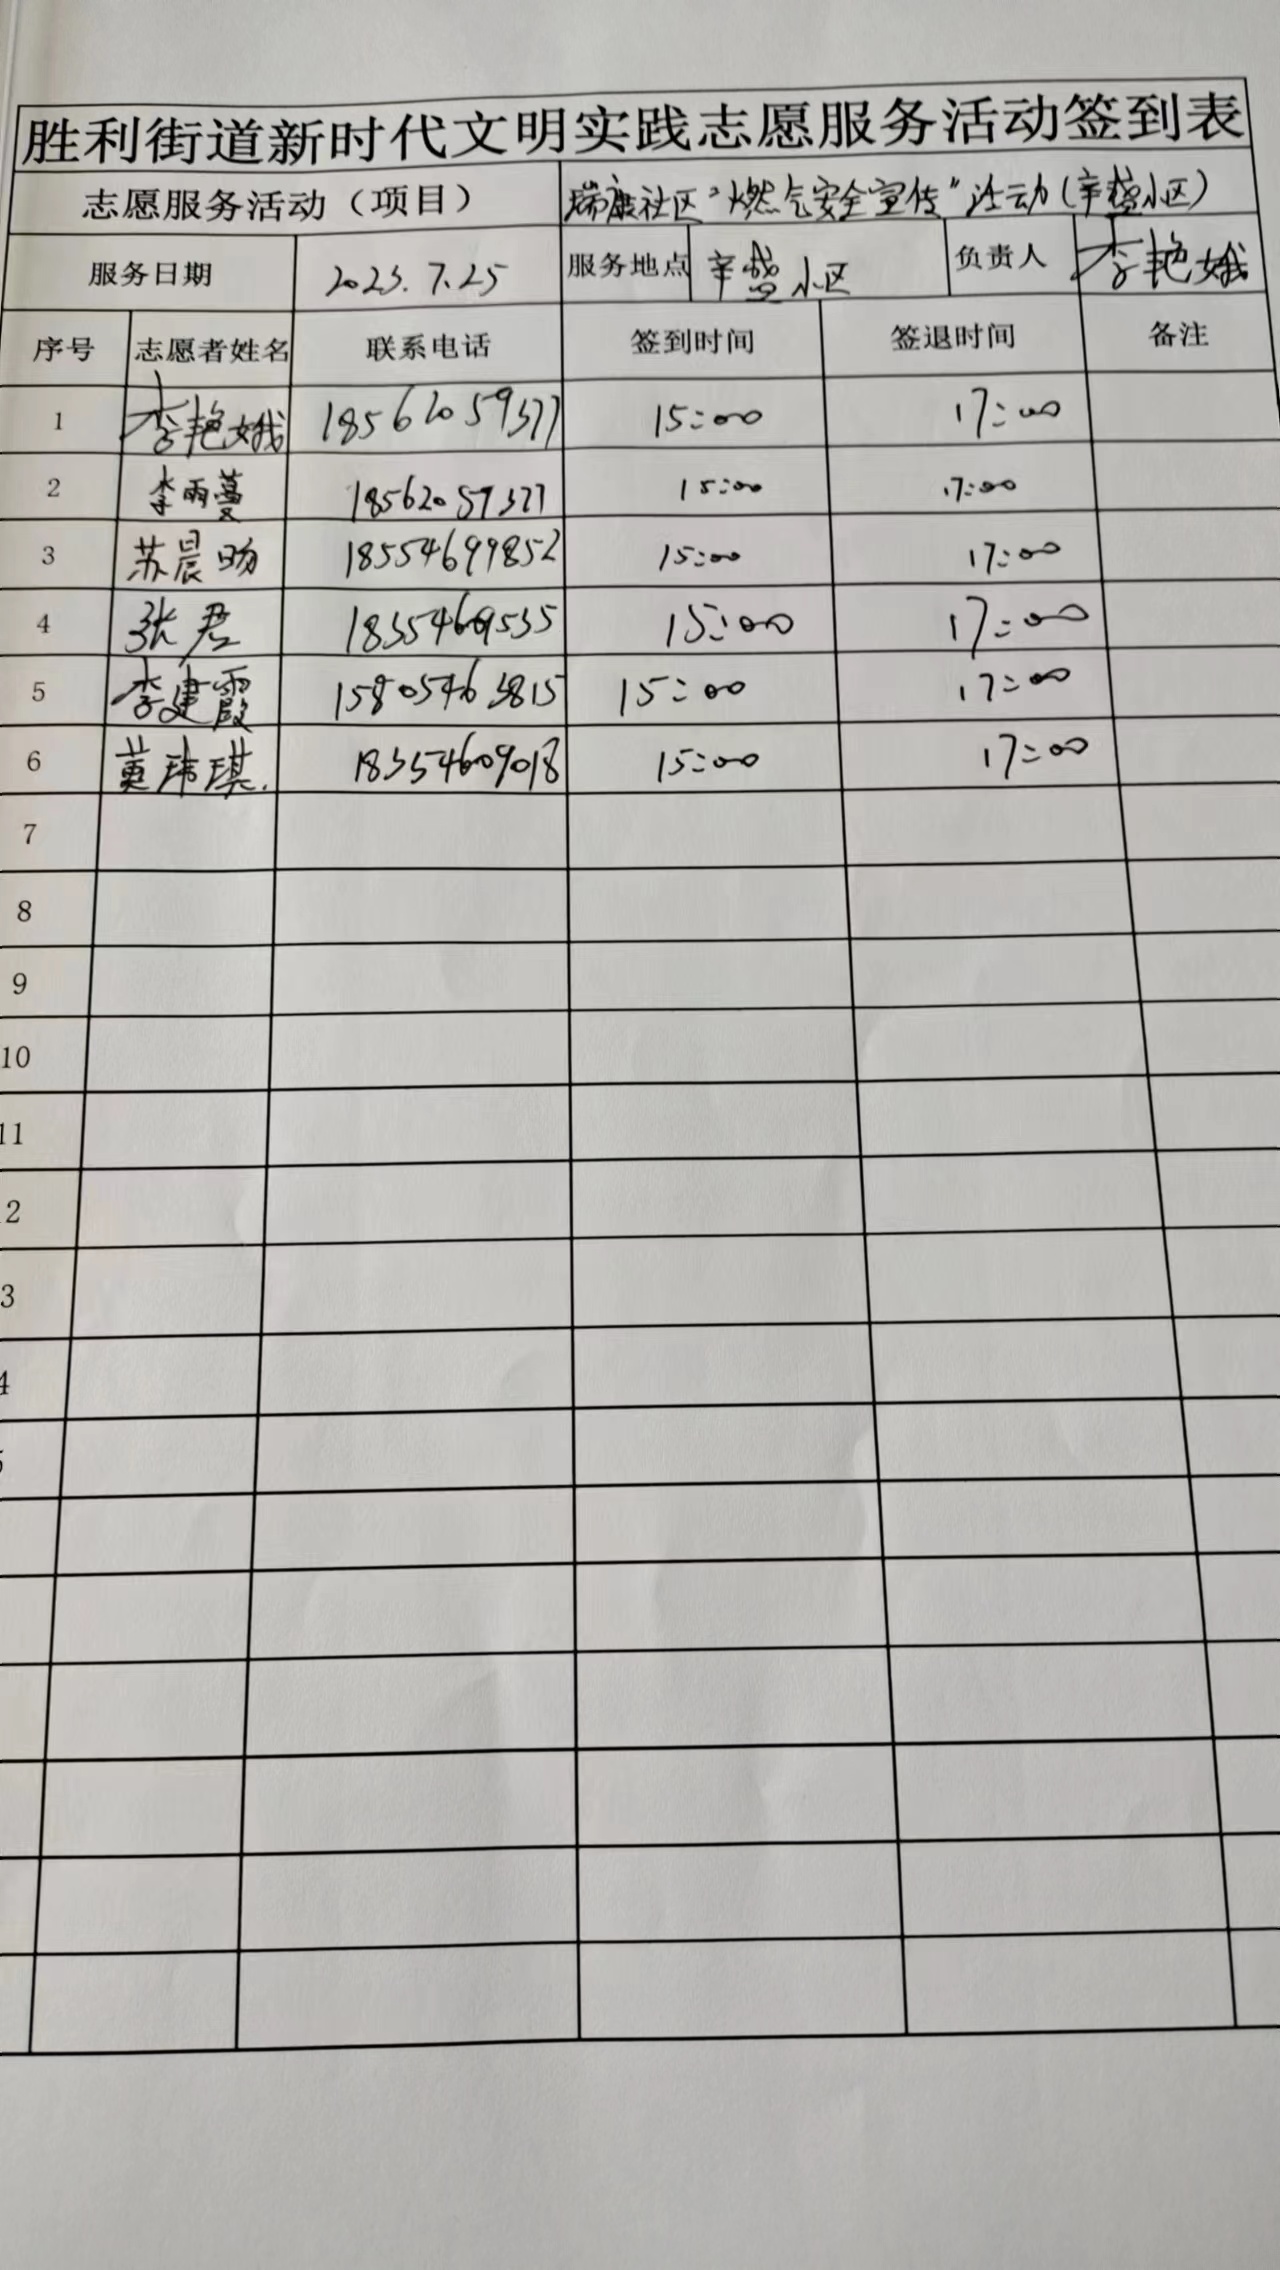 胜利街道新时代文明实践志愿服务活动签到表
志愿服务活动（项目） 瑞康社区“燃气安全宣传”活动（辛盛小区）
服务日期 2023.7.25 服务地点 辛盛小区 负责人 李艳娥
序号 志愿者姓名 联系电话 签到时间 签退时间 备注
1 李艳娥 18562059377 15:00 17:00
2 李雨蔓 18562059377 15:00 17:00
3 苏晨旸 18554699852 15:00 17:00
4 张君 15:00 17:00
5 李建霞 15805463815 15:00 17:00
6 黄玮琪. 18354609018 15:00 17:00
7
8
9
10
11
2
3
4
5